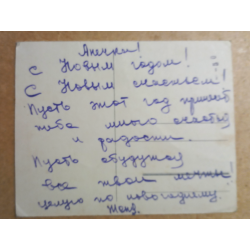 Анечка!
С Новым годом!
С Новым счастьем!
Пусть этот год принесёт
тебе много счастья
и радости.
Пусть сбудутся
все твои мечты
целую по новогоднему.